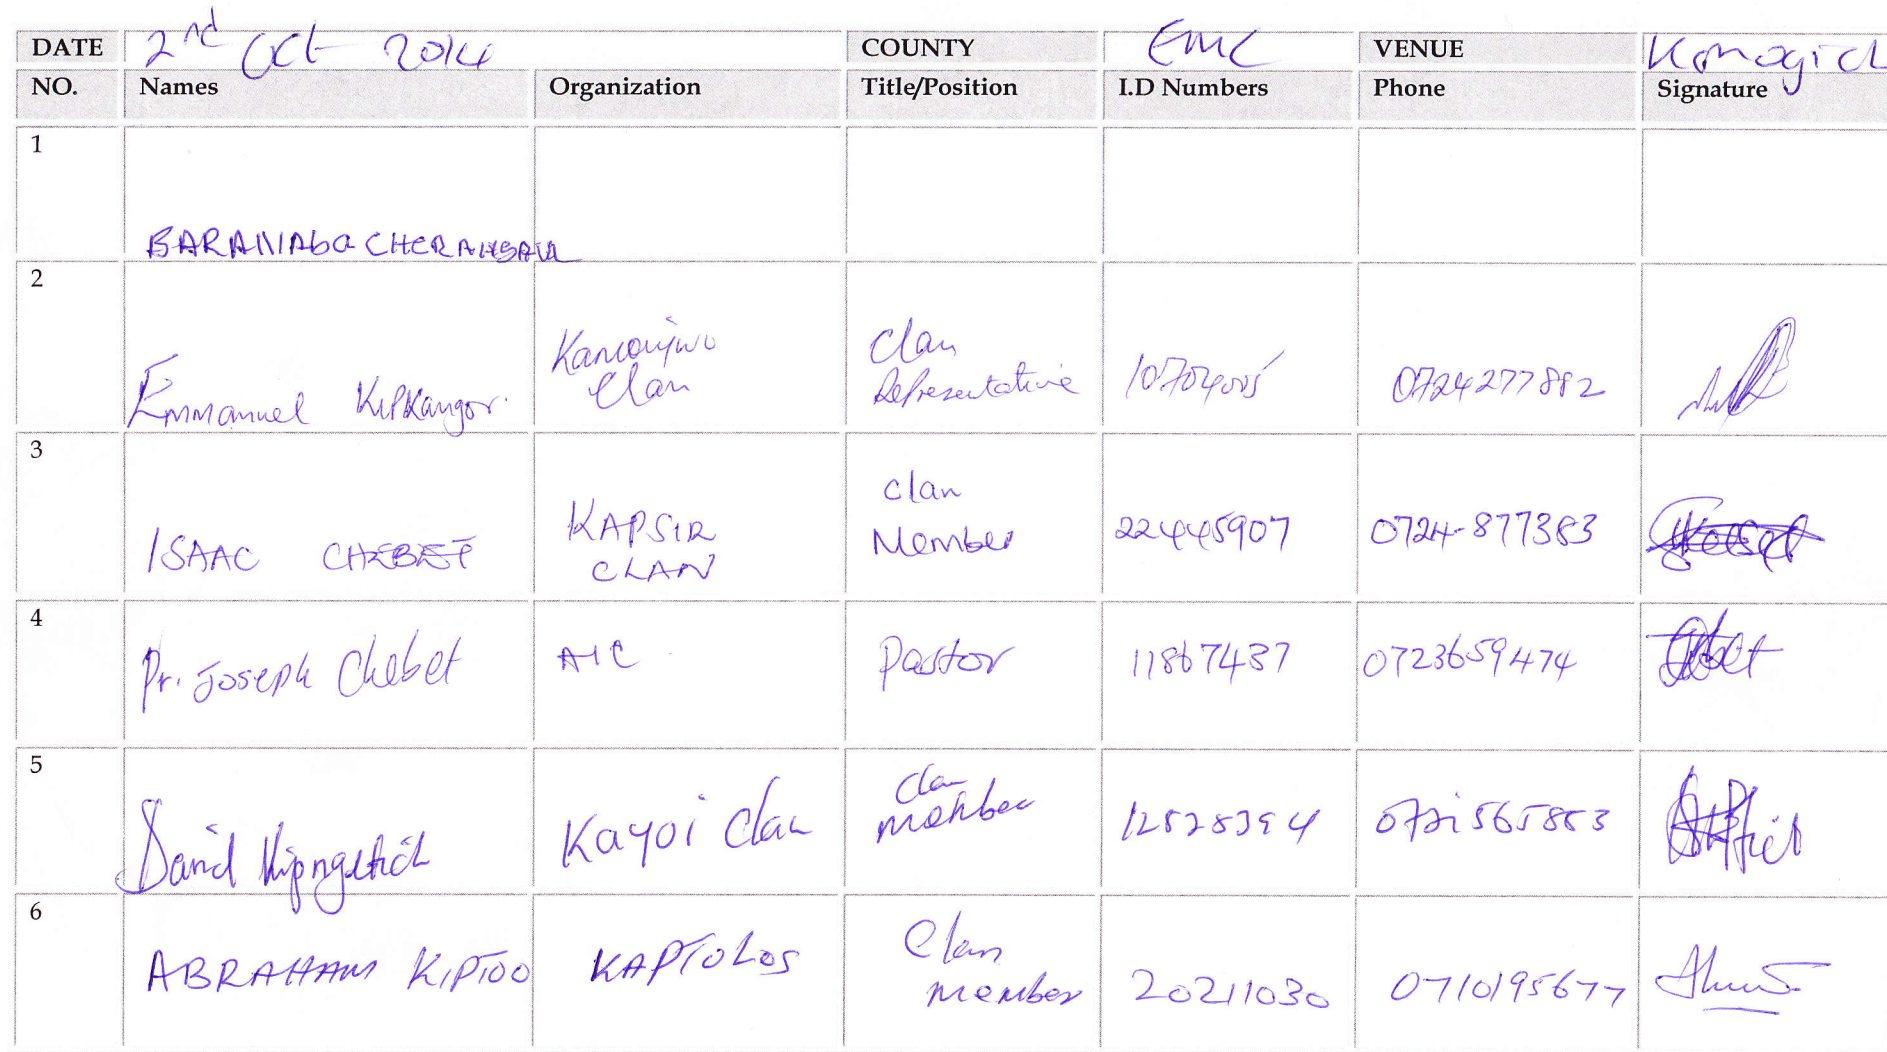 DATE 2nd Oct 2014 COUNTY EMC VENUE
NO. Names Organization Title/Position I.D Numbers Phone Signature
1
BARANAba
2
Emmanuel Kipkangor. Clan Clan Representative 10704005 0724277882
3
ISAAC CHEBET KAPSIR CLAN Clan Member 22445907 0724-877383
4
Pr. Joseph Chebet AIC Pastor 11867437 0723659474
5
David Kipngetich Kayoi Clan Clan member 12528394 0721565853
6
ABRAHAM KIPTOO KAPTOLOS Clan member 20211030 0710195677